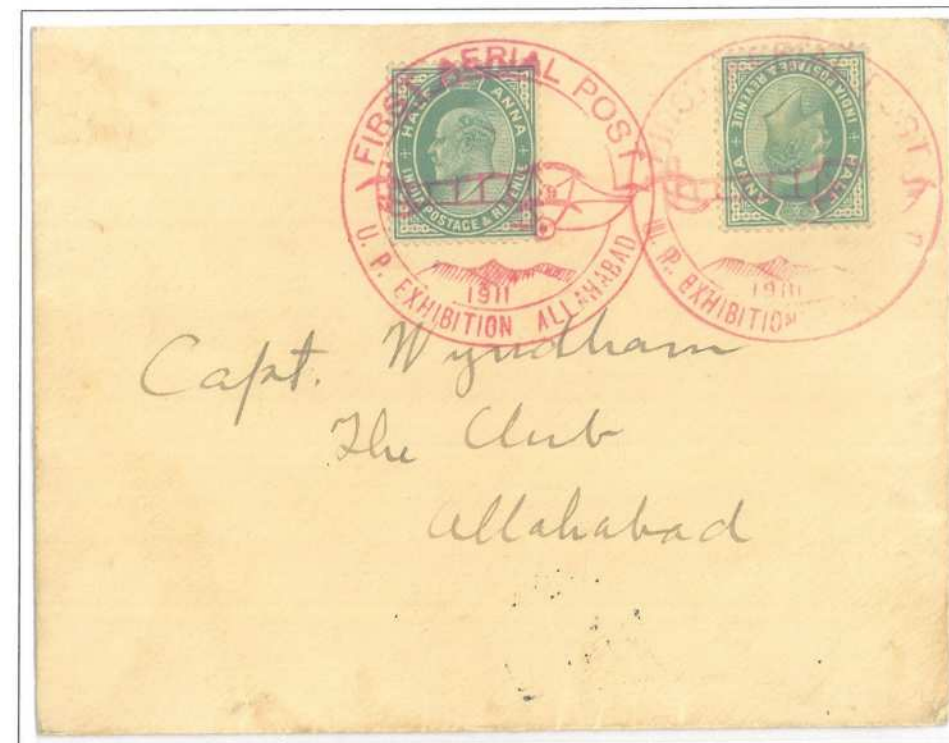 FIRST AERIAL POST
HALF ANNA
INDIA POSTAGE & REVENUE
1911
U. P. EXHIBITION ALLAHABAD
HALF ANNA
INDIA POSTAGE & REVENUE
U. P. EXHIBITION
Capt. Wyndham
The Club
Allahabad